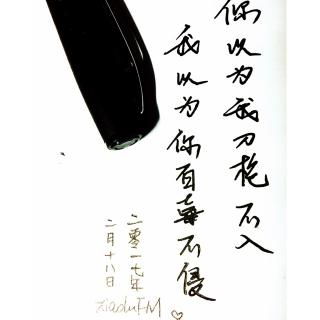 你以为我刀枪不入
我以为你百毒不侵
二零一七年
二月十八日